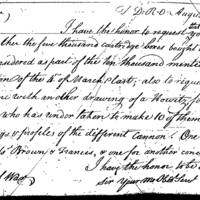 S D R O August
I have the honor to request
ther the five thousand cartridge boxes bought
ndered as part of the ten thousand menti
ion of the 4th of March last; also to requ
me with another drawing of a Howitz for
who has undertaken to make 10 of them
gs & profiles of the different Cannon. One
Brown & Francis, & one for another conc
I have the honor to be
Sir Your mo Obt Sert